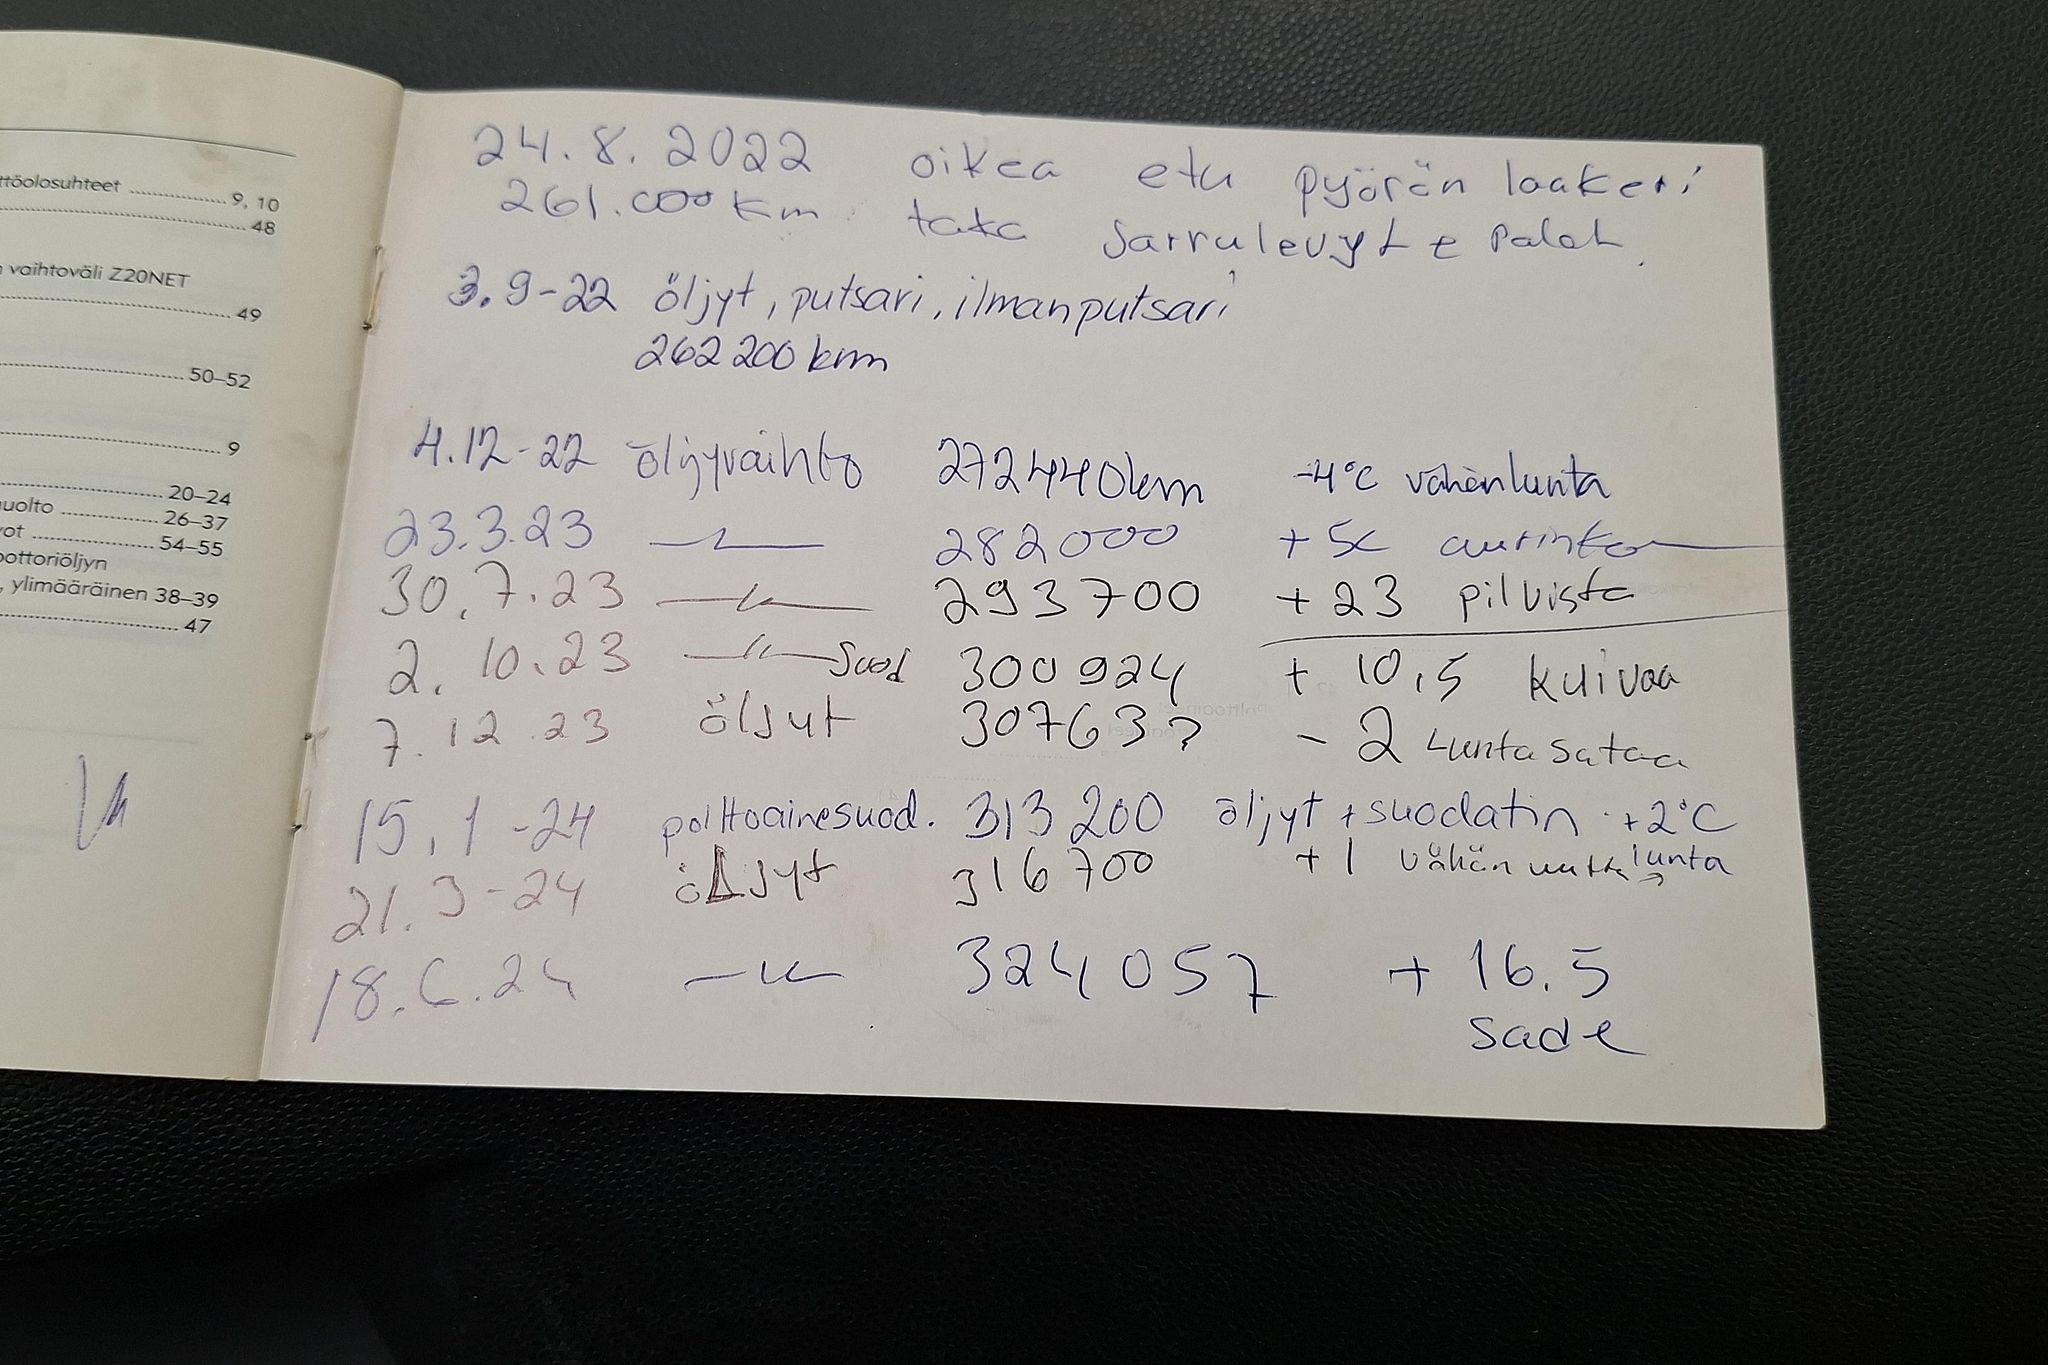 ttöolosuhteet 9, 10
48
vaihtoväli Z20NET
49
50–52
9
20–24
uolto 26–37
vot 54–55
oottoriöljyn
, ylimääräinen 38–39
47
24.8.2022 oikea etu pyörän laakeri
261.000 km taka sarrulevyt e palat.
3.9-22 öljyt, putsari, ilmanputsari
262 200 km
4.12-22 öljyvaihto 272440km -4°c vähänlunta
23.3.23 —〃— 282000 +5c aurinko
30.7.23 —〃— 293700 +23 pilvistä
2.10.23 —〃— Suod 300924 +10,5 kuivaa
7.12.23 öljyt 30763? -2 Lunta sataa
15.1-24 polttoainesuod. 313 200 öljyt + suodatin +2°C
21.3-24 öljyt 316700 +1 vähän uutta lunta
18.6.24 —〃— 324057 +16.5
sade